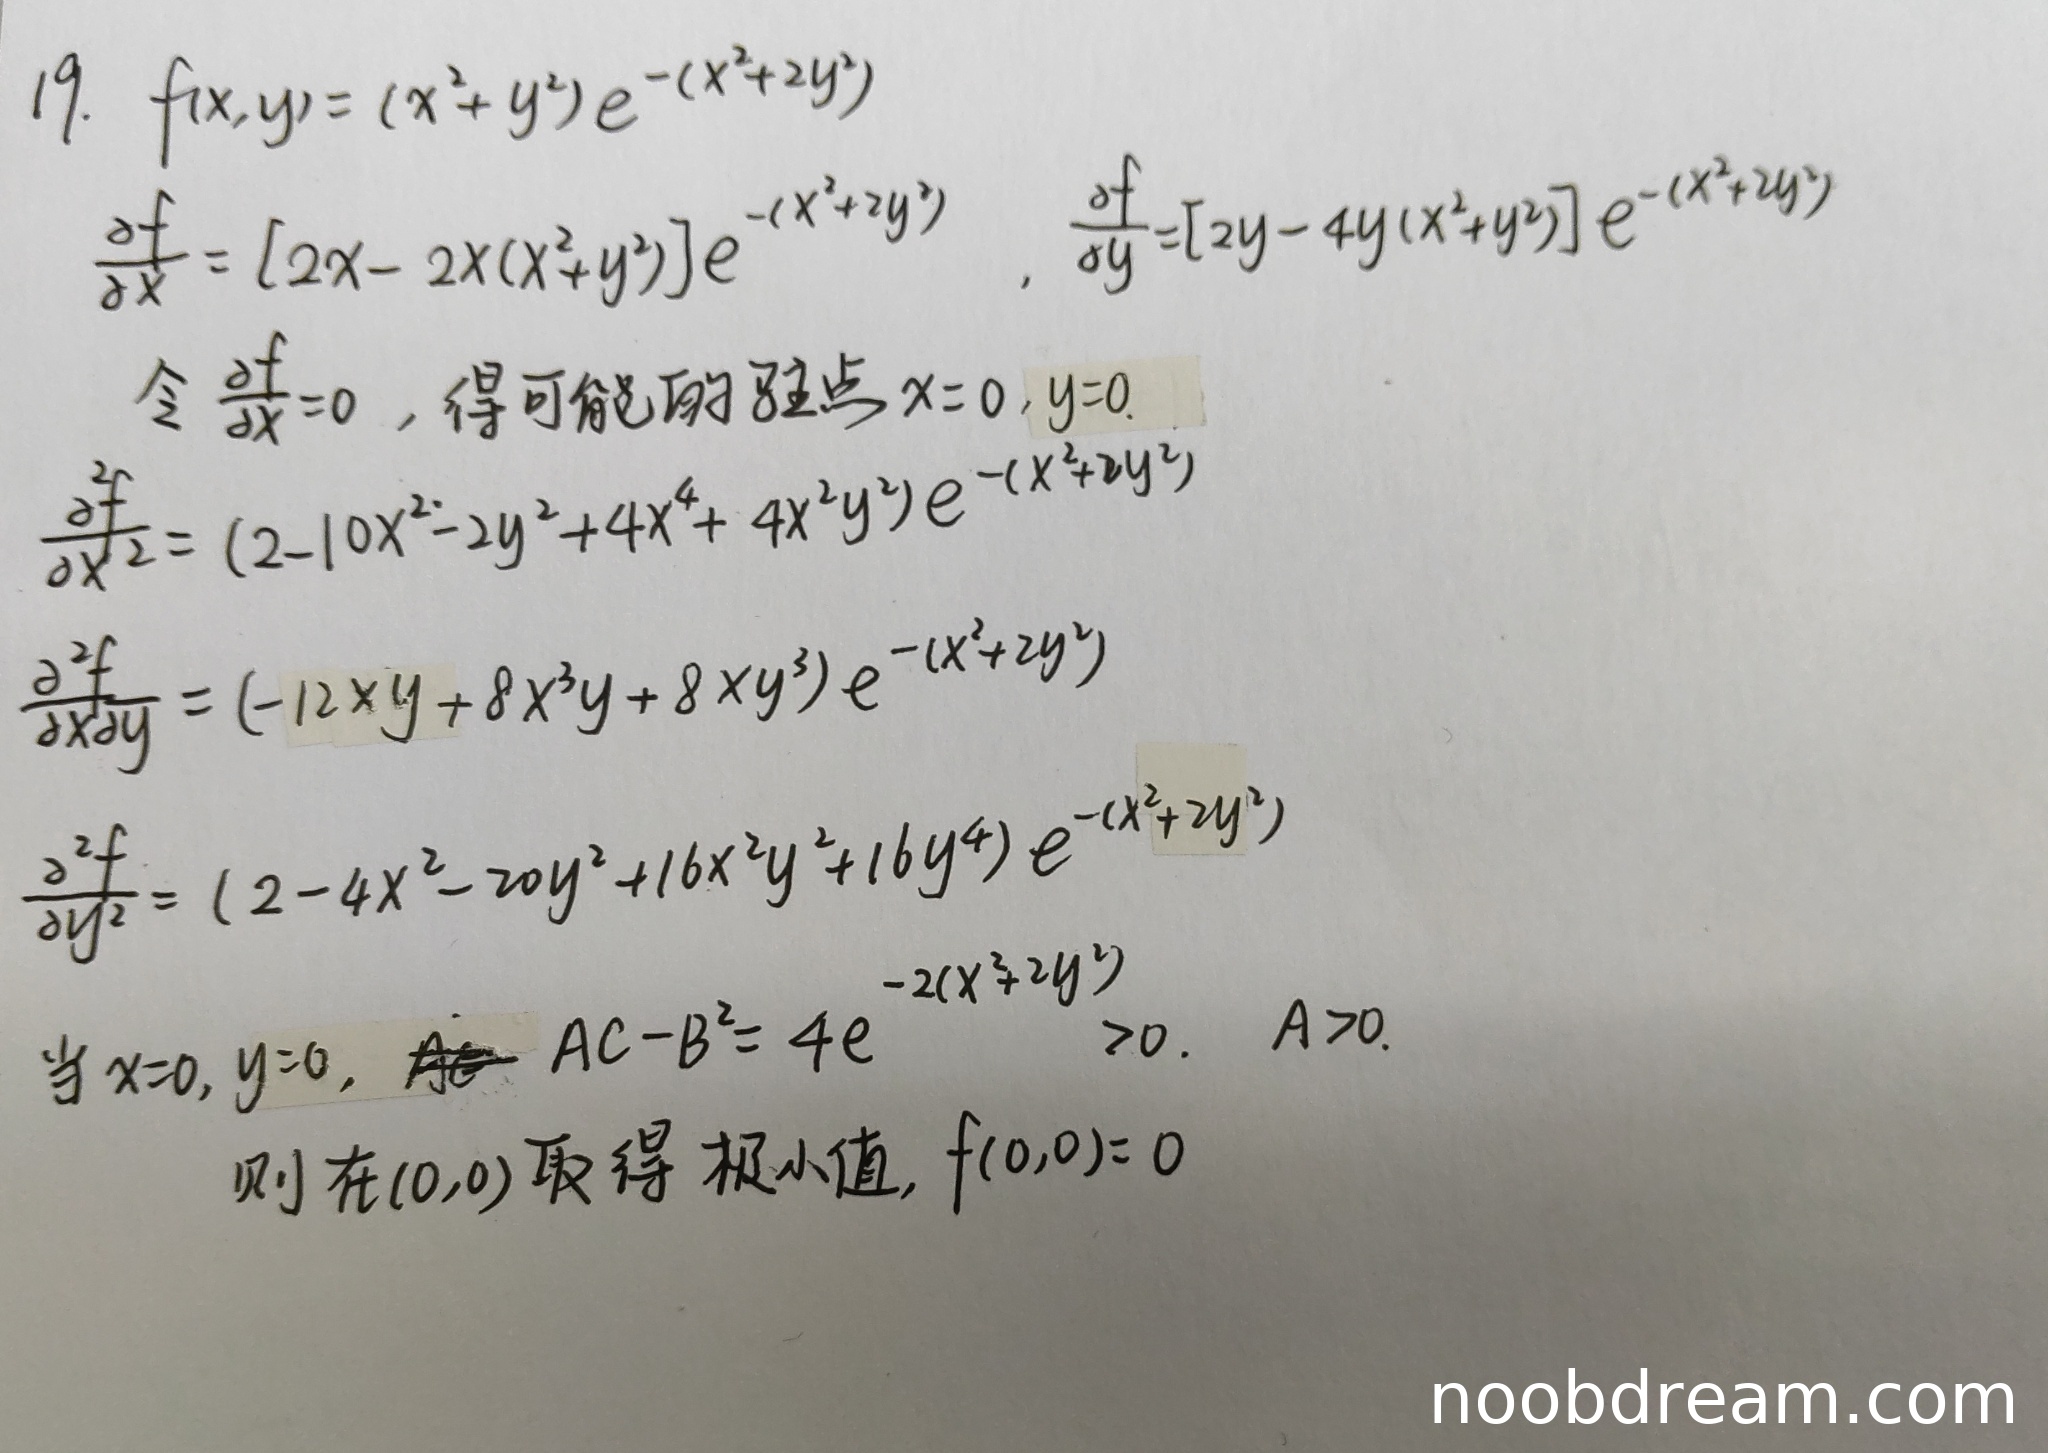 19. f(x,y)=(x²+y²)e^{-(x²+2y²)}
∂f/∂x = [2x-2x(x²+y²)]e^{-(x²+2y²)} , ∂f/∂y=[2y-4y(x²+y²)]e^{-(x²+2y²)}
令 ∂f/∂x=0 , 得可能的驻点 x=0, y=0.
∂²f/∂x² = (2-10x²-2y²+4x⁴+4x²y²)e^{-(x²+2y²)}
∂²f/∂x∂y = (-12xy+8x³y+8xy³)e^{-(x²+2y²)}
∂²f/∂y² = (2-4x²-20y²+16x²y²+16y⁴)e^{-(x²+2y²)}
当x=0, y=0, AC-B²=4e^{-2(x²+2y²)}>0. A>0.
则在(0,0)取得极小值, f(0,0)=0
noobdream.com